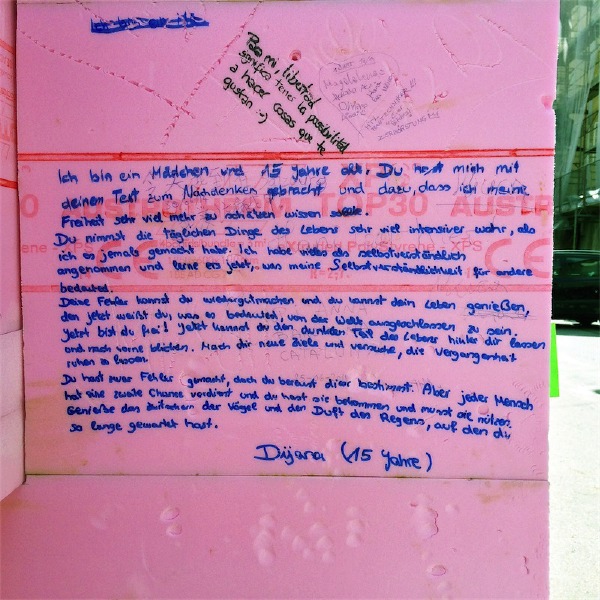 Para mi libertad
significa tener la posibilidad
a hacer cosas que te
gustan :-)
Ich bin ein Mädchen und 15 Jahre alt. Du hast mich mit
deinen Text zum Nachdenken gebracht und dazu, dass ich meine
Freiheit sehr viel mehr zu schätzen wissen sollte.
TOP30 AUSTR
Du nimmst die täglichen Dinge des Lebens sehr viel intensiver wahr, als
ich es jemals gemacht habe. Ich habe vieles als selbstverständlich
XPS
angenommen und lerne es jetzt, was meine Selbstverständlichkeit für andere
bedeutet.
Deine Fehler kannst du wiedergutmachen und du kannst dein Leben genießen,
den jetzt weißt du, was es bedeuted, von der Welt ausgeschlossen zu sein.
Jetzt bist du frei! Jetzt kannst du den dunklen Teil des Lebens hinter dir lassen
und nach vorne blicken. Mach dir neue Ziele und versuche, die Vergangenheit
ruhen zu lassen.
Du hast zwar Fehler gemacht, doch du bereust diese bestimmt. Aber jeder Mensch
hat eine zweite Chance verdient und du hast sie bekommen und musst sie nützen.
Genieße das Zwitschern der Vögel und den Duft des Regens, auf den du
so lange gewartet hast.
Dijana (15 Jahre)